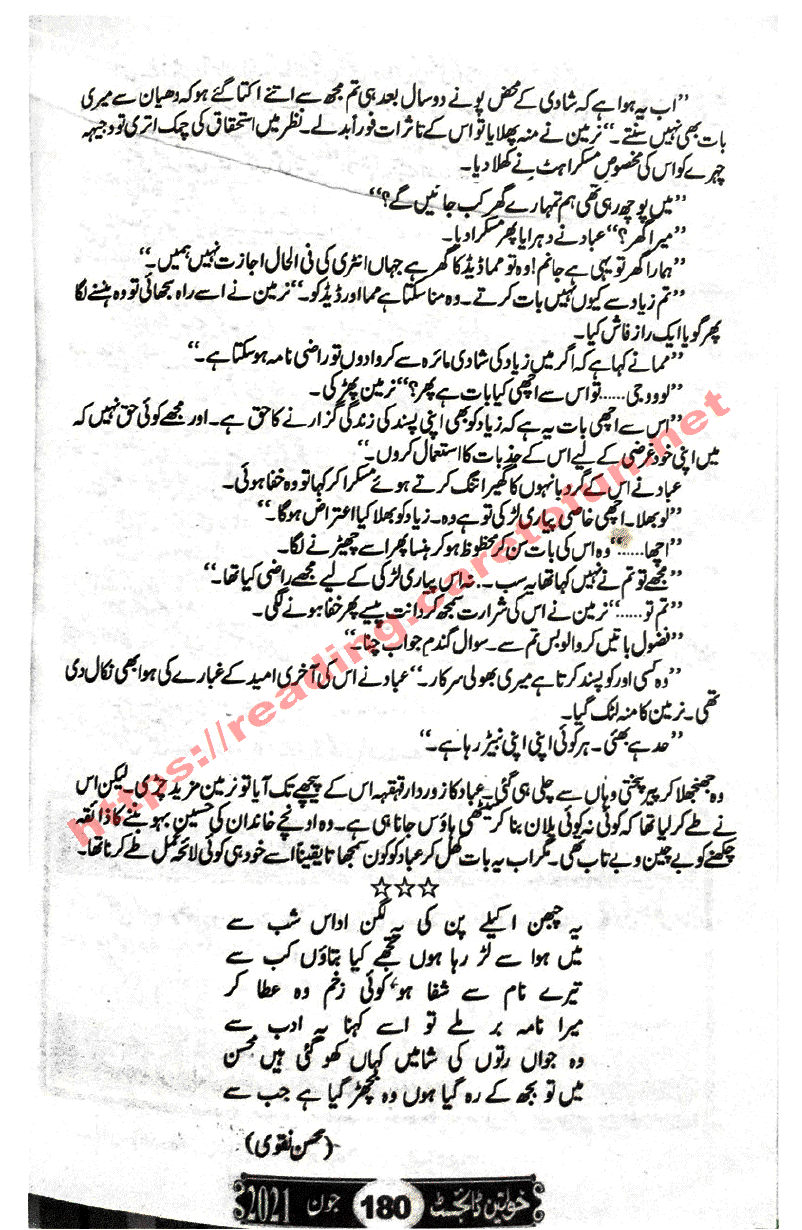 ”اب یہ ہوا ہے کہ شادی کے محض پونے دو سال بعد ہی تم مجھ سے اتنے اکتا گئے ہو کہ دھیان سے میری
بات بھی نہیں سنتے۔“ نرمین نے منہ پھلایا تو اس کے تاثرات فوراً بدلے۔ نظر میں استحقاق کی چمک اتری تو وجیہہ
چہرے کو اس کی مخصوص مسکراہٹ نے کھلا دیا۔
”میں پوچھ رہی تھی ہم تمہارے گھر کب جائیں گے؟“
”میرا گھر؟“ عباد نے دہرایا پھر مسکرا دیا۔
”ہمارا گھر تو یہی ہے جانم! وہ تو مما ڈیڈ کا گھر ہے جہاں انٹری کی فی الحال اجازت نہیں ہمیں۔“
”تم زیاد سے کیوں نہیں بات کرتے۔ وہ منا سکتا ہے مما اور ڈیڈ کو۔“ نرمین نے اسے راہ سجھائی تو وہ ہنسنے لگا
پھر گویا ایک راز فاش کیا۔
”ممانے کہا ہے کہ اگر میں زیاد کی شادی مائرہ سے کروا دوں تو راضی نامہ ہو سکتا ہے۔“
”لووو جی...... تو اس سے اچھی کیا بات ہے پھر؟“ نرمین پھڑکی۔
”اس سے اچھی بات یہ ہے کہ زیاد کو بھی اپنی پسند کی زندگی گزارنے کا حق ہے۔ اور مجھے کوئی حق نہیں کہ
میں اپنی خود غرضی کے لیے اس کے جذبات کا استعمال کروں۔“
عباد نے اس کے گرد بانہوں کا گھیرا تنگ کرتے ہوئے مسکرا کر کہا تو وہ خفا ہوئی۔
”لو بھلا۔ اچھی خاصی پیاری لڑکی تو ہے وہ۔ زیاد کو بھلا کیا اعتراض ہوگا۔“
”اچھا......“ وہ اس کی بات سن کر محظوظ ہو کر ہنسا پھر اسے چھیڑنے لگا۔
”مجھے تو تم نے نہیں کہا تھا یہ سب۔ نہ اس پیاری لڑکی کے لیے مجھے راضی کیا تھا۔“
”تم تو......“ نرمین نے اس کی شرارت سمجھ کر دانت پیسے پھر خفا ہونے لگی۔
”فضول باتیں کروا لو بس تم سے۔ سوال گندم جواب چنا۔“
”وہ کسی اور کو پسند کرتا ہے میری بھولی سرکار۔“ عباد نے اس کی آخری امید کے غبارے کی ہوا بھی نکال دی
تھی۔ نرمین کا منہ لٹک گیا۔
”حد ہے بھئی۔ ہر کوئی اپنی اپنی نبیڑ رہا ہے۔“
وہ جھنجھلا کر پیر پٹختی وہاں سے چلی ہی گئی۔ عباد کا زوردار قہقہہ اس کے پیچھے تک آیا تو نرمین مزید چڑی۔ لیکن اس
نے طے کر لیا تھا کہ کوئی نہ کوئی پلان بنا کر سیٹھی ہاؤس جانا ہی ہے۔ وہ اونچے خاندان کی حسین بہو بننے کا ذائقہ
چکھنے کو بے چین و بے تاب تھی۔ مگر اب یہ بات کھل کر عباد کو کون سمجھاتا یقیناً اسے خود ہی کوئی لائحہ عمل طے کرنا تھا۔
☆☆☆
یہ چبھن اکیلے پن کی یہ لگن اداس شب سے
میں ہوا سے لڑ رہا ہوں تجھے کیا بتاؤں کب سے
تیرے نام سے شفا ہو، کوئی زخم وہ عطا کر
میرا نامہ بر ملے تو اسے کہنا یہ ادب سے
وہ جواں رتوں کی شامیں کہاں کھو گئی ہیں محسن
میں تو بجھ کے رہ گیا ہوں وہ بچھڑ گیا ہے جب سے
(محسن نقوی)
خواتین ڈائجسٹ 180 جون 2021
https://reading.caretofun.net